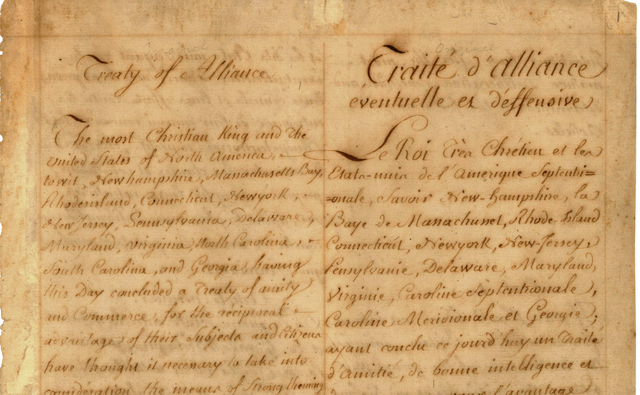 Treaty of Alliance
The most Christian King and the
United States of North America,
to wit, Newhampshire, Massachusetts Bay,
Rhodeisland, Connecticut, Newyork,
New Jersey, Pennsylvania, Delaware,
Maryland, Virginia, North Carolina,
South Carolina, and Georgia, having
this Day concluded a Treaty of amity
and Commerce, for the reciprocal
advantage of their Subjects and Citizens
have thought it necessary to take into
consideration the means of Strengthening
Traité d'alliance
éventuelle et déffensive
Le Roi Très Chrétien et les
Etats-unis de l'Amerique Septentri=
=onale, Savoir New-hampshire, la
Baye de Massachusset, Rhode-Island
Connecticut, Newyork, New-Jersey,
Pensylvanie, Delaware, Maryland,
Virginie, Caroline Septentrionale,
Caroline Meridionale et Georgie,
ayant conclu ce jourd'huy un Traité
d'Amitié, de bonne intelligence et
l'avantage